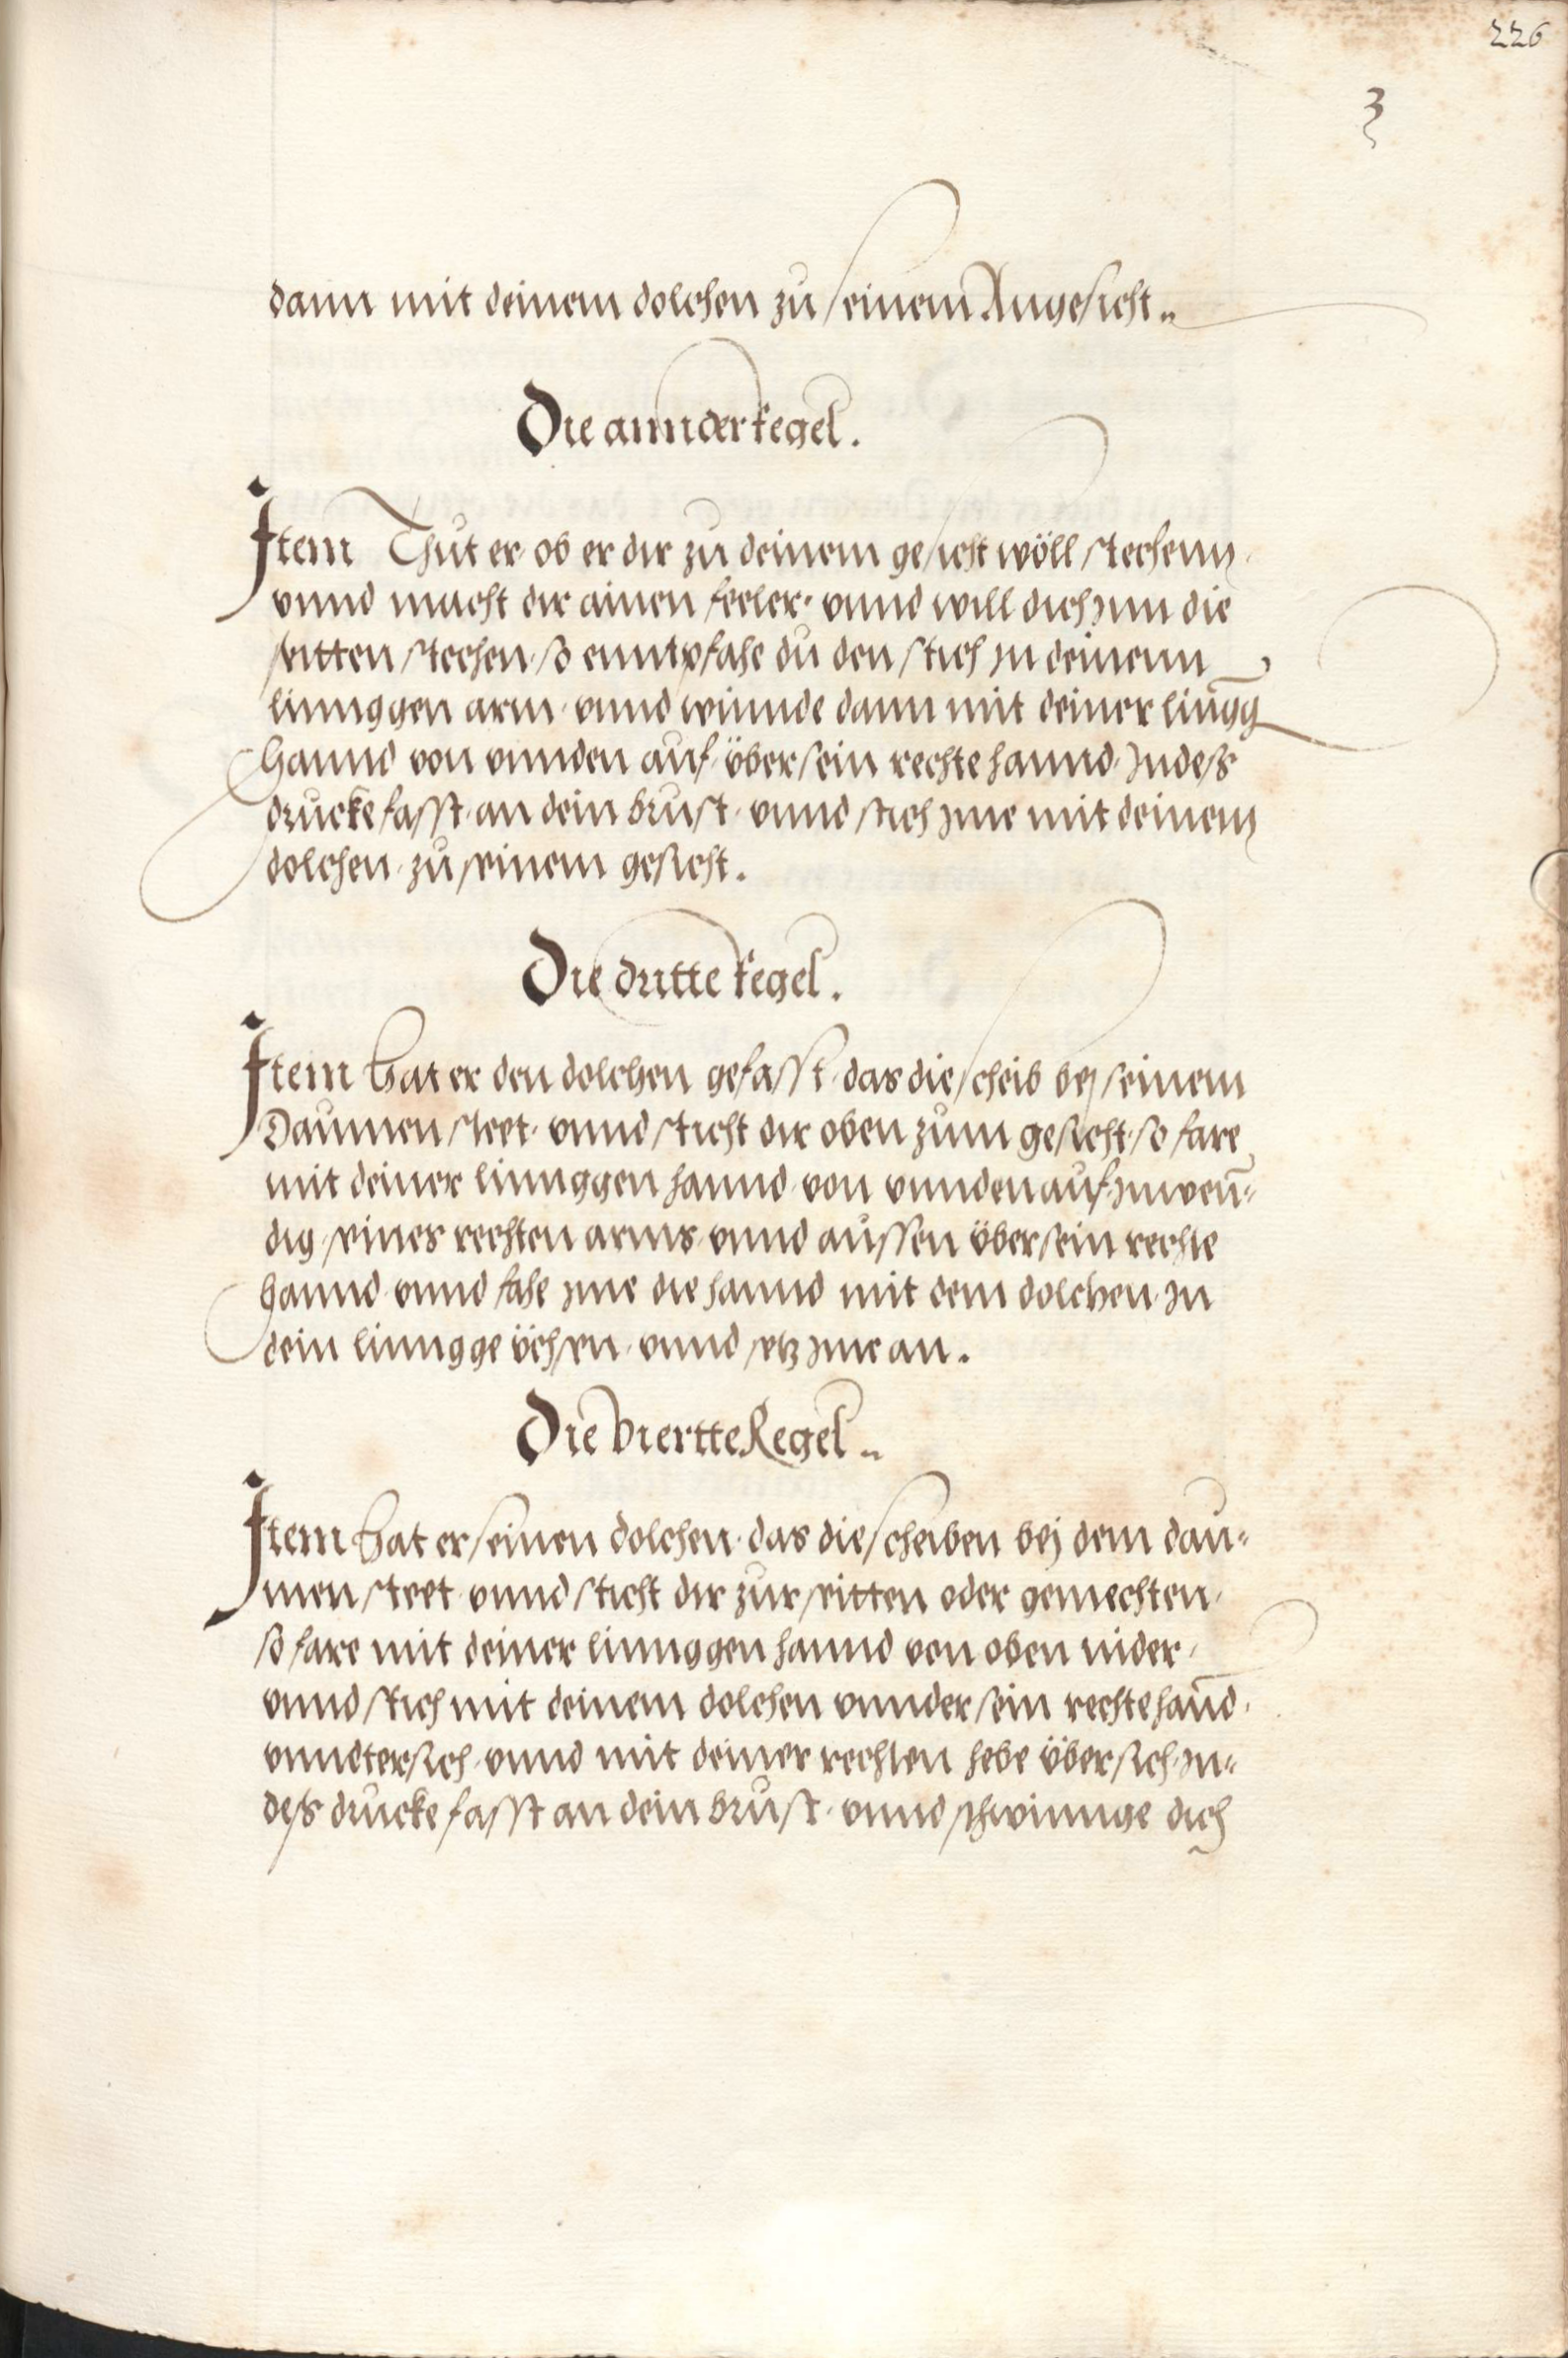 226
3
dann mit deinem dolchen zu seinem Angesicht..
Die annder regel.
Item Thut er ob er dir zu deinem gesicht wöll stechenn,
vnnd macht dir ainen feeler, vnnd will dich jnn die
seitten stechen, so enntpfahe du den stich jn deinenn
linnggen arm, vnnd winnde dann mit deiner lingg̅
hannd von vnnden auf, über sein rechte hannd, Indeß
drucke fasst, an dein brust, vnnd stich jme mit deinem
dolchen, zu seinem gesicht.
Die dritte regel.
Item hat er den dolchen gefasst, das die scheib bej seinem
Daumen steet, vnnd sticht dir oben zum gesicht, so fare
mit deiner linnggen hannd, von vnnden auf, jnwen̅=
dig, seines rechten arms, vnnd aussen über sein rechte
hannd, vnnd fahe jme die hannd mit dem dolchen, jn
dein linngge üchsen, vnnd setz jme an.
Die Viertte Regel..
Item hat er seinen dolchen, das die scheiben bej dem dau=
men steet, vnnd sticht dir zur seitten oder gemechten,
so fare mit deiner linnggen hannd von oben nider,
vnnd stich mit deinem dolchen vnnder sein rechte han̅d,
vnndtersich, vnnd mit deiner rechten hebe übersich, jn=
deß drucke fasst an dein brust, vnnd schwinnge dich